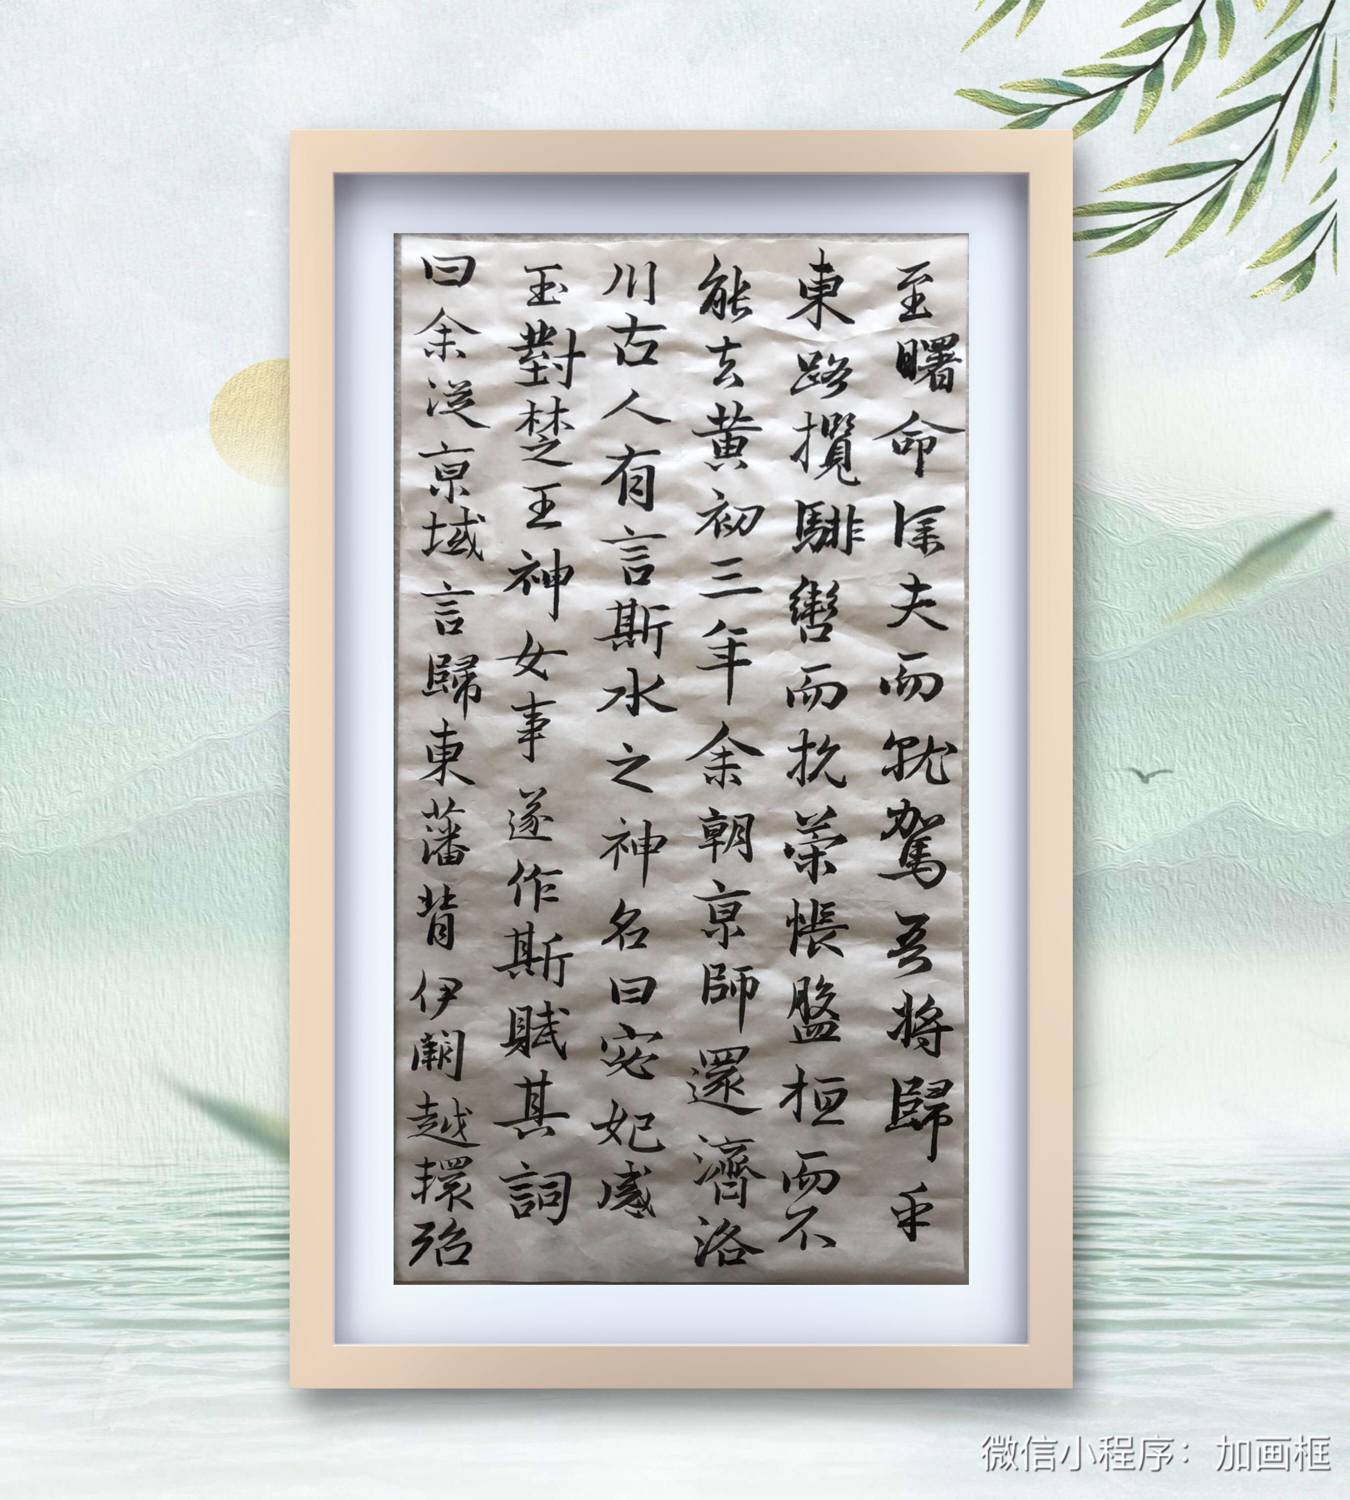 至曙命㒒夫而就駕吾將歸乎
東路攬騑轡而抗策悵盤桓而不
能去黄初三年余朝京師還濟洛
川古人有言斯水之神名曰宓妃感
玉對楚王神女事遂作斯賦其詞
曰余從京域言歸東藩背伊闕越轘
微信小程序：加画框